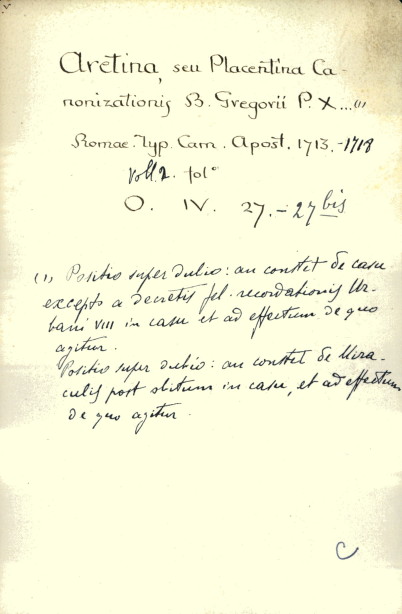 Aretina, seu Placentina Ca-
nonizationis B. Gregorii P. X...(1)
Romae. Typ. Cam. Apost. 1713.-1718
Voll. 2. fol°
O. IV. 27.-27 bis
(1) Positio super dubio: an constet de casu
excepto a decretis fel. recordationis Ur-
bani VIII in casu et ad effectum de quo
agitur.
Positio super dubio: an constet de Mira-
culis post obitum in casu, et ad effectum
de quo agitur.
C